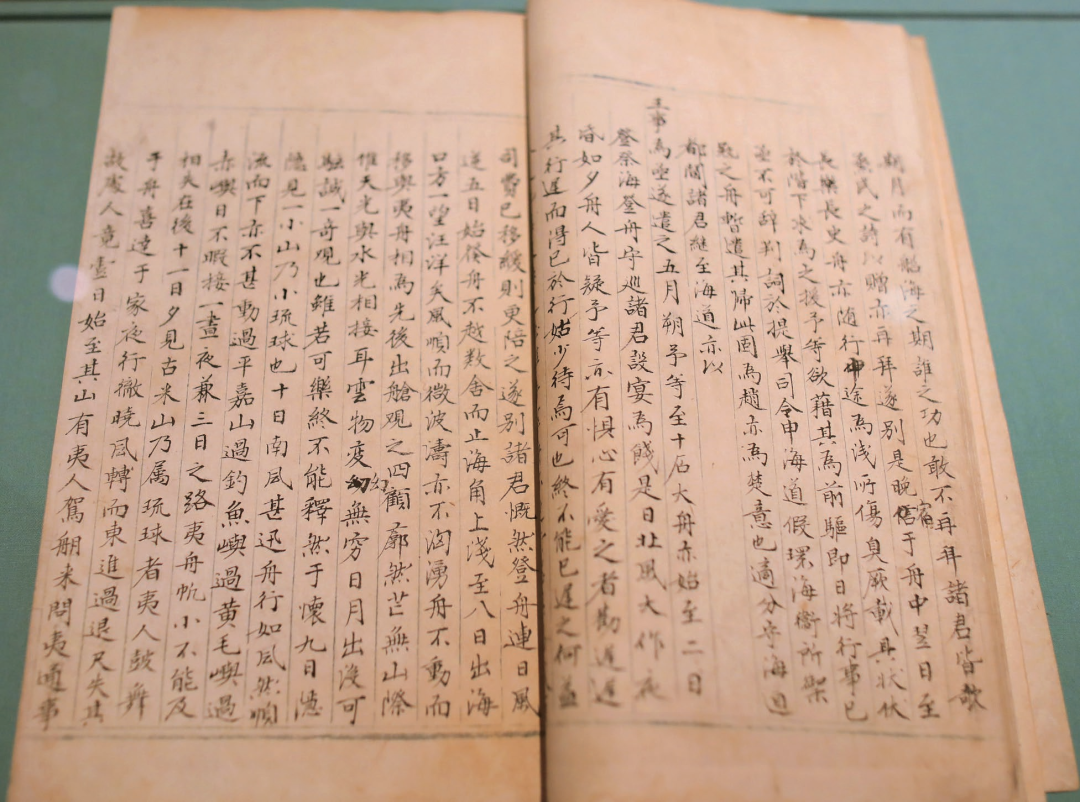 期月而有航海之期誰之功也敢不再拜諸君皆歌
烝民之詩以贈亦再拜遂別是晚宿于舟中翌日至
長樂長史舟亦随行中途為浅所傷臭厥載具狀伏
於階下求為之援予等欲藉其為前驅即日將行事已
亟不可辞判詞於提舉司令申海道假環海衛所架
艱之舟暫遣其歸此固為趙亦為楚意也適分守海道
都閫諸君継至海道亦以
王事為亟遂遣之五月朔予等至石大舟亦始至二日
登祭海登舟守巡諸君設宴為餞是日北風大作夜
昏如夕舟人皆疑予等亦有惧心有愛之者勸遲遲
其行遲而得已於行姑少待焉可也終不能已遲之何益
司費已移緩則更陪之遂别諸君慨然登舟連日風
逆五日始發舟不越数舍而止海角上淺至八日出海
口方一望汪洋矣風順而微波濤亦不洶湧舟不動而
移與夷舟相為先後出艙觀之四顧廓然茫無山際
惟天光與水光相接耳雲物变幻無穷日月出没可
駭誠一奇观也雖若可樂終不能釋然于懷九日隱
隱見一小山乃小琉球也十日南風甚迅舟行如風然順
流而下亦不甚動過平嘉山過釣魚嶼過黄毛嶼過
赤嶼目不暇接一晝夜兼三日之路夷舟帆小不能及
相失在後十一日夕見古米山乃属琉球者夷人鼓舞
于舟喜達于家夜行徹曉風轉而東進過退尺失其
故處人竟一日始至其山有夷人駕舠来問夷通事